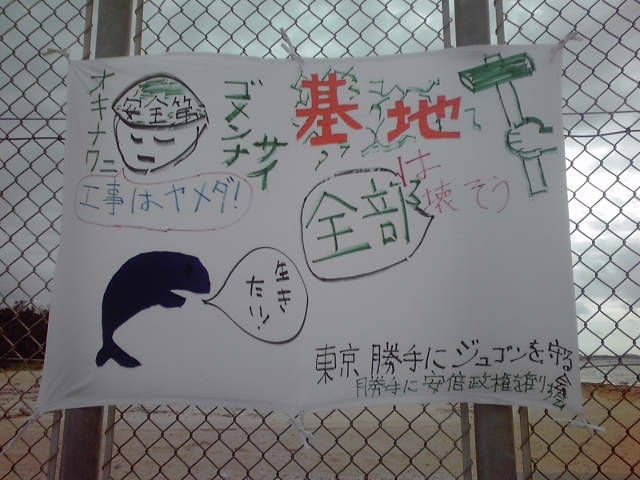 オキナワニ
安全第一
ゴメンナサイ
工事はヤメダ!
基地は
全部
壊そう
生きたい!
東京 勝手にジュゴンを守る会
勝手に安倍政権を倒す会